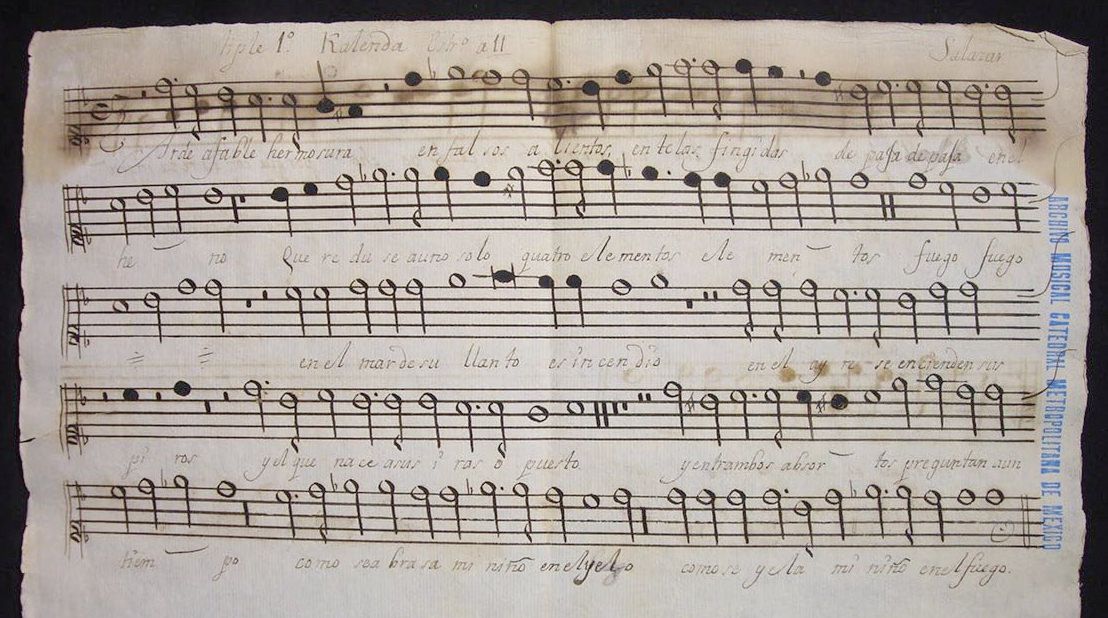 tiple 1º Kalenda a 11 Salazar
Arde afable hermosura en falsos alientos en telas fingidas de paja de paja en el
he no Que redu se a uno solo quatro elementos ele men tos fuego fuego
en el mar de su llanto es incendio en el ay re se encienden sus
pi ros y el que nace a sus i ras o puesto y entrambos absor tos preguntan a un
tiem po como se abrasa mi niño en el yelo como se yela mi niño en el fuego.
ARCHIVO MUSICAL CATEDRAL METROPOLITANA DE MEXICO